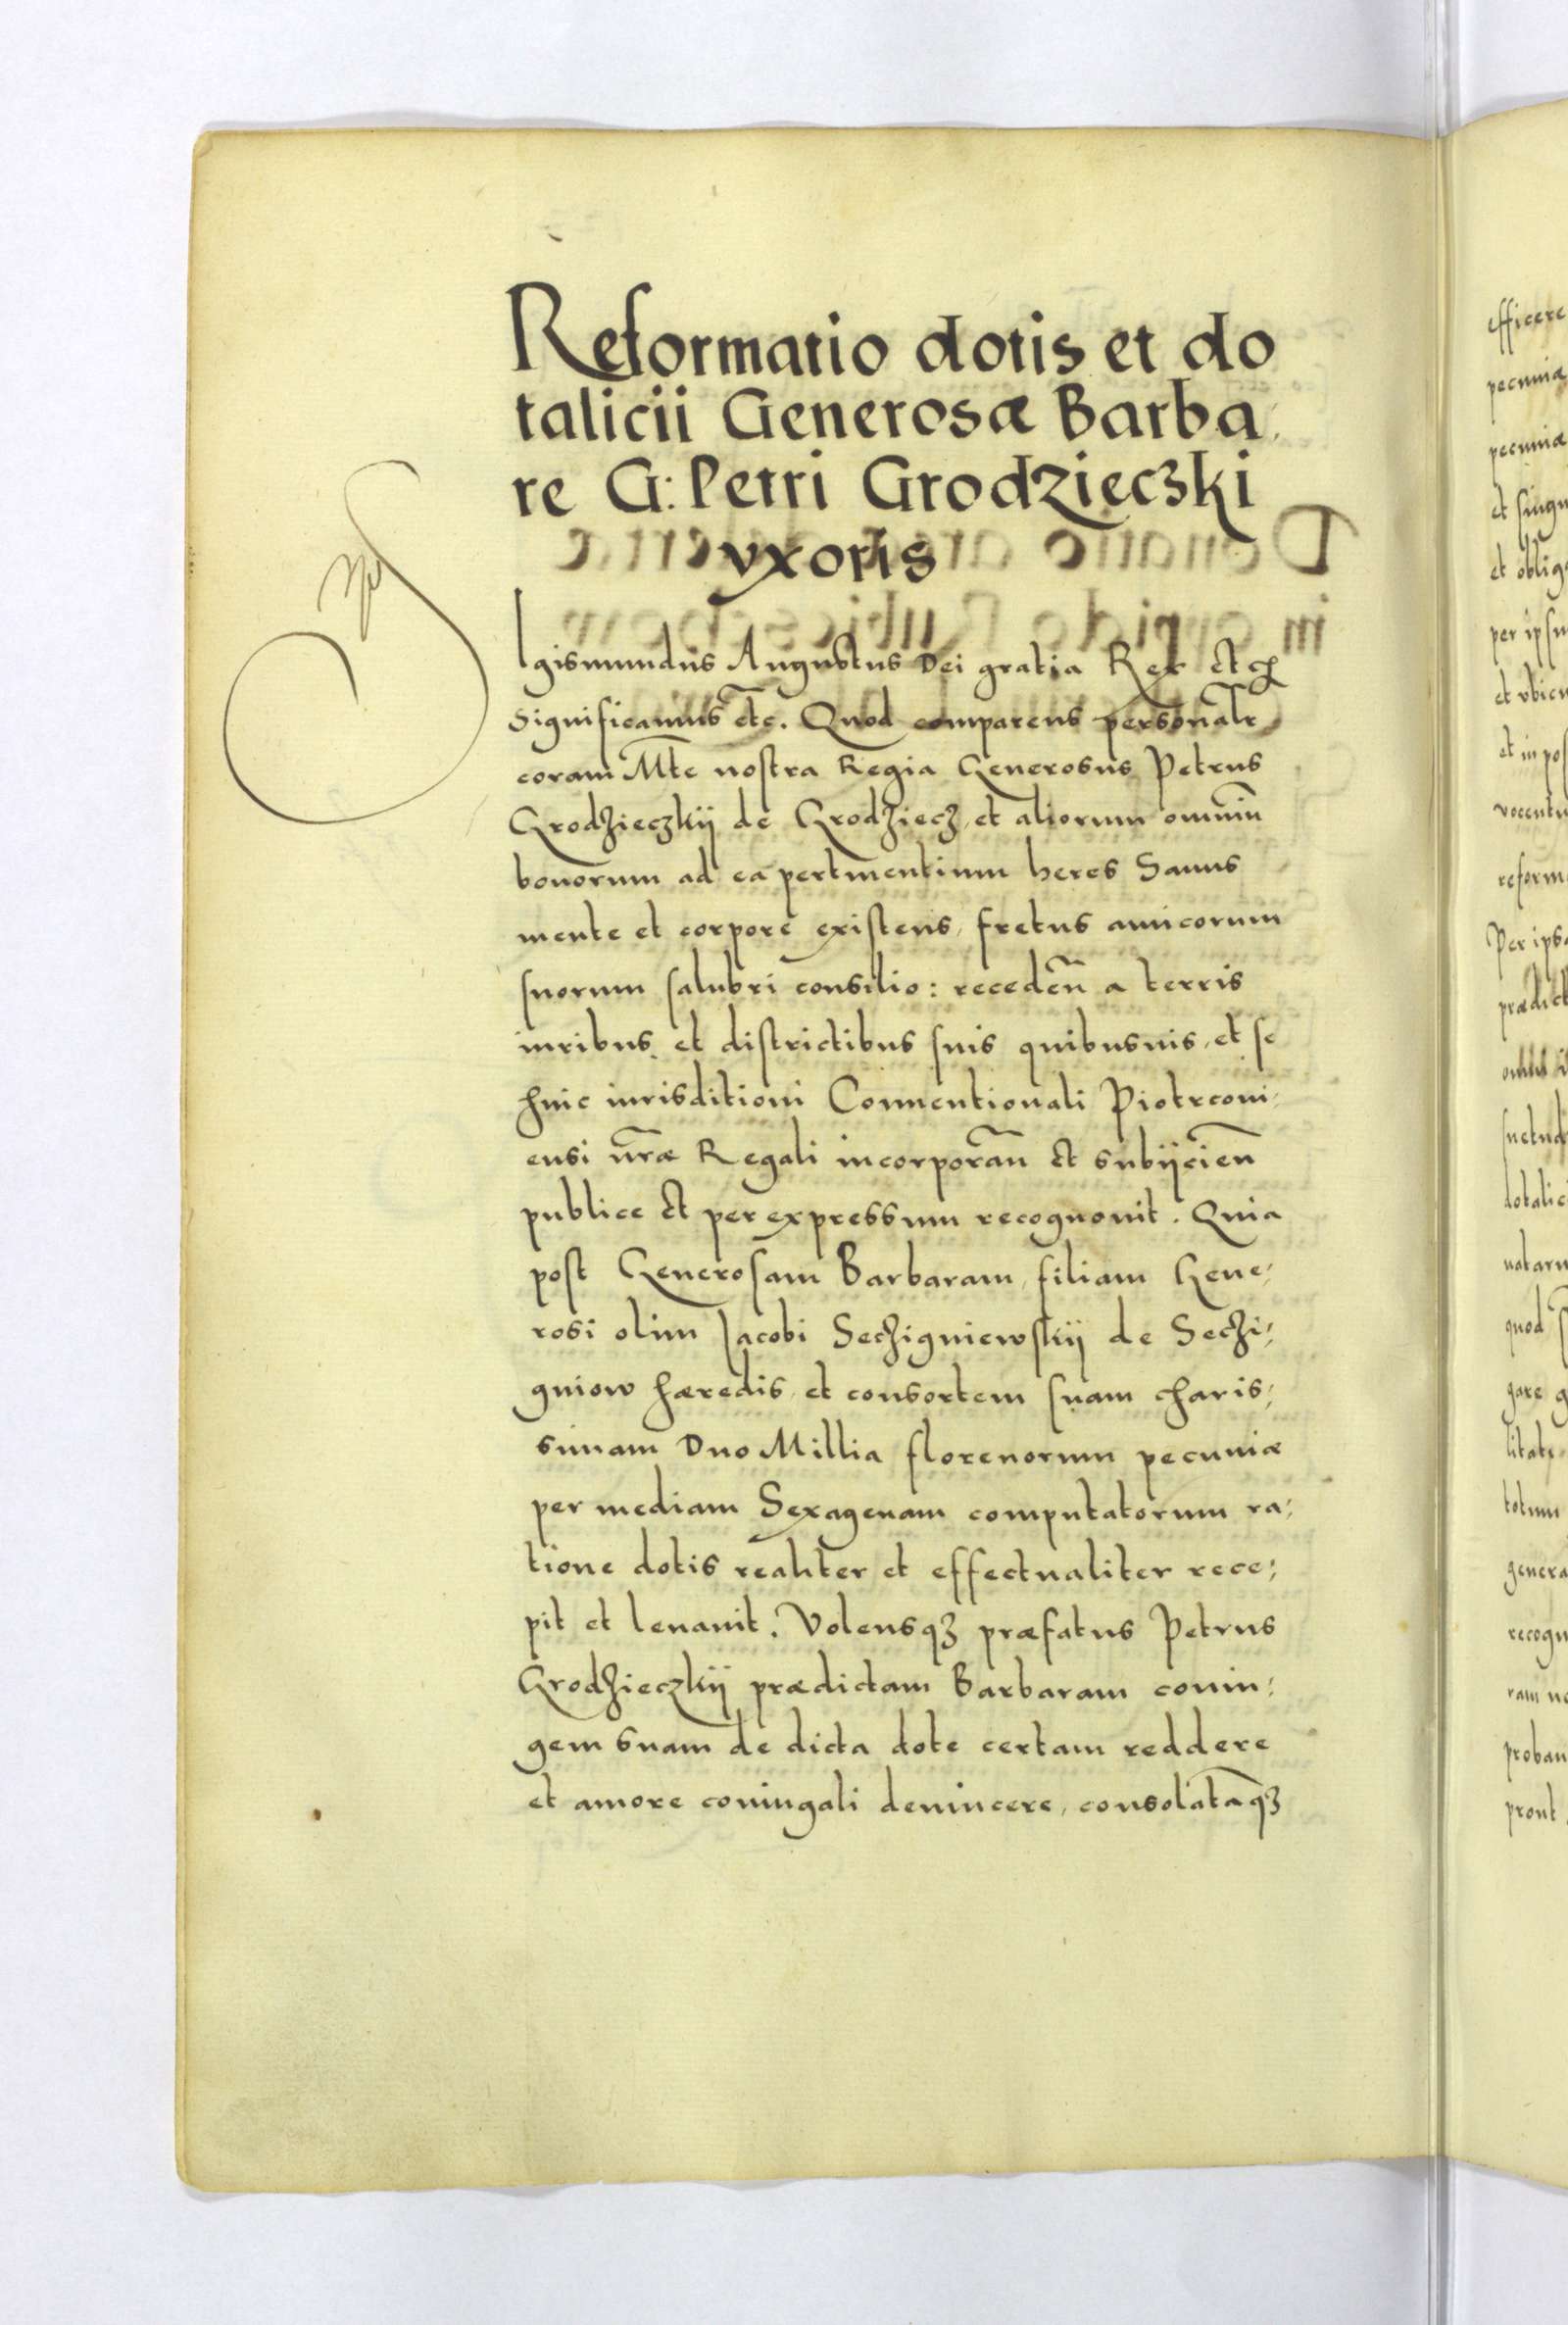 Reformatio dotis et do
talicii Generosæ Barba,
re G: Petri Grodzieczki
vxoris
Igismundus Augustus Dei gratia Rex etc
Significamus etc. Quod comparens personalr
coram Mte nostra Regia Generosus Petrus
Grodzieczkij de Grodziecz, et aliorum omniu
bonorum ad ea pertinentium heres Sanus
mente et corpore existens, fretus amicorum
suorum salubri consilio: receden a terris
iuribus et districtibus suis quibusuis, et se
huic iurisditioni Conuentionali Piotrcoui,
ensi nræ Regali incorporan et subijcien
publice et per expressum recognouit. Quia
post Generosam Barbaram, filiam Gene;
rosi olim Jacobi Seczigniewskij de Seczi;
gniow hæredis, et consortem suam charis;
simam Duo Millia florenorum pecuniæ
per mediam Sexagenam computatorum ra;
tione dotis realiter et effectualiter rece;
pit et leuauit. Volensqz præfatus Petrus
Grodzieczkij prædictam Barbaram coniu;
gem suam de dicta dote certam reddere
et amore coniugali deuincere, consolataqz
efficere
pecuniæ
pecuniæ
et singu
et oblig
per ipsu
et vbicu
et in pos
vocentu
reform
Per ipsa
prædict
suetud
dotalic
nataru
quod
gare g
litate
totum
genera
recogn
ram no
proban
prout